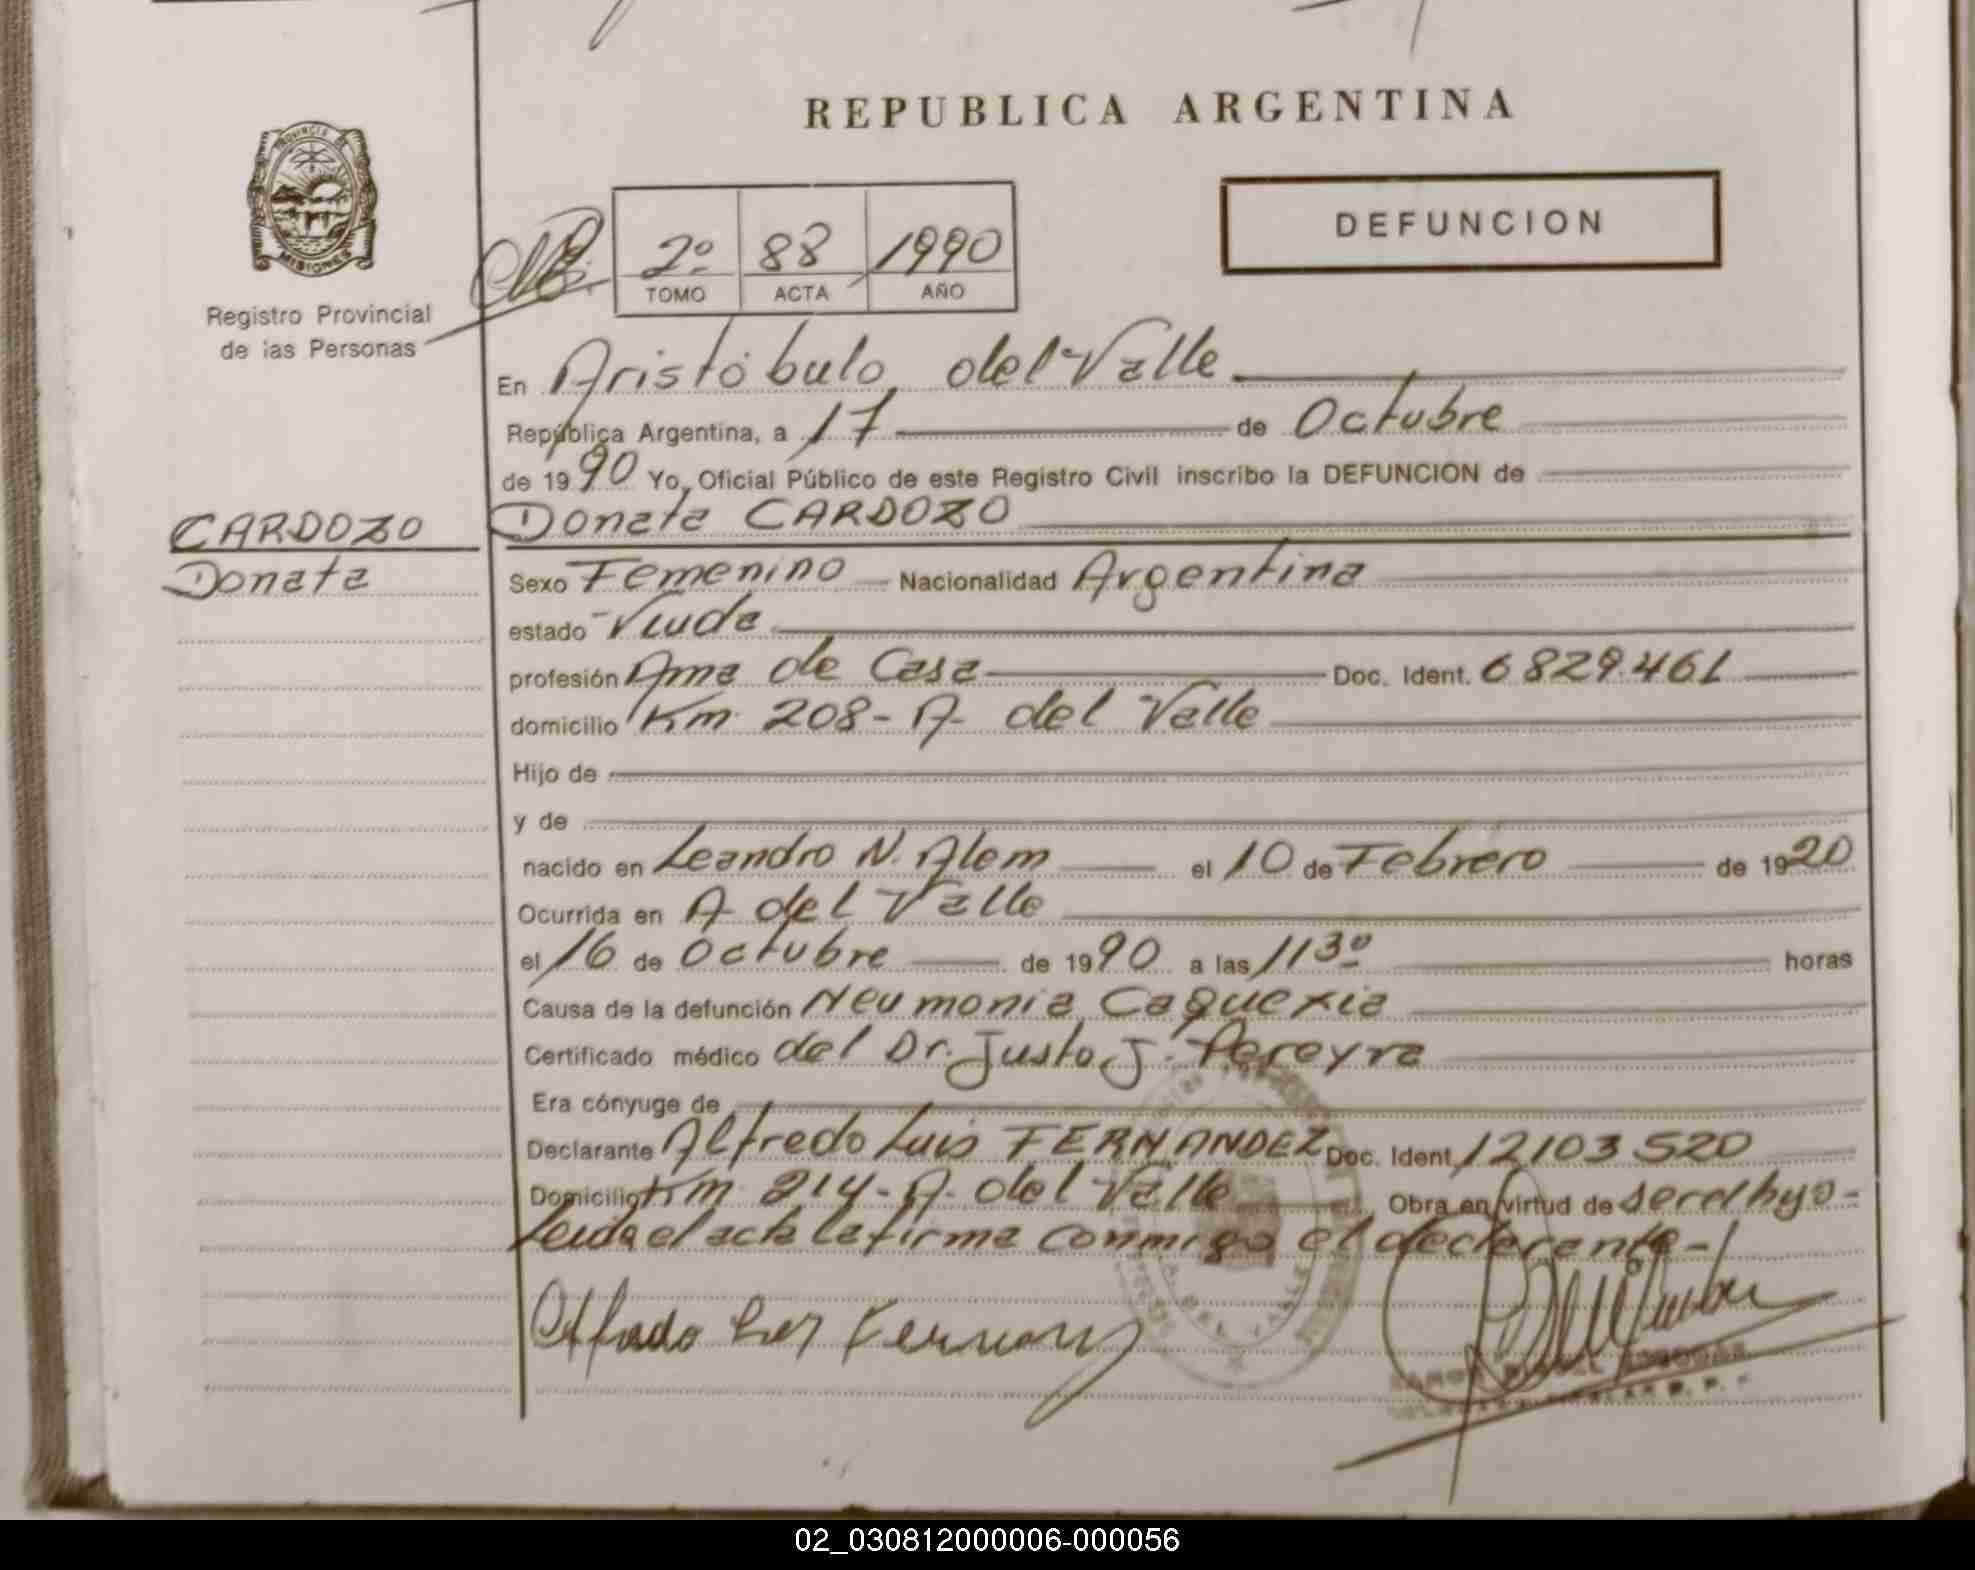 REPUBLICA ARGENTINA
PROVINCIA DE
MISIONES
Registro Provincial
de las Personas
2º 88 1990
TOMO ACTA AÑO
DEFUNCION
En Aristóbulo del Valle
República Argentina, a 17 de Octubre
de 1990 Yo, Oficial Público de este Registro Civil inscribo la DEFUNCION de
CARDOZO
Donata
Donata CARDOZO
Sexo Femenino Nacionalidad Argentina
estado Viuda
profesión Ama de Casa Doc. Ident. 6829.461
domicilio Km 208- A. del Valle
Hijo de
y de
nacido en Leandro N. Alem el 10 de Febrero de 1920
Ocurrida en A del Valle
el 16 de Octubre de 1990 a las 1130 horas
Causa de la defunción Neumonia Caquexia
Certificado médico del Dr. Justo J. Pereyra
Era cónyuge de
Declarante Alfredo Luis FERNANDEZ Doc. Ident. 12103520
Domicilio Km 214- A. del Valle Obra en virtud de ser el hijo-
Leida el acta la firma conmigo el declarante-
DEL VALLE
02_030812000006-000056